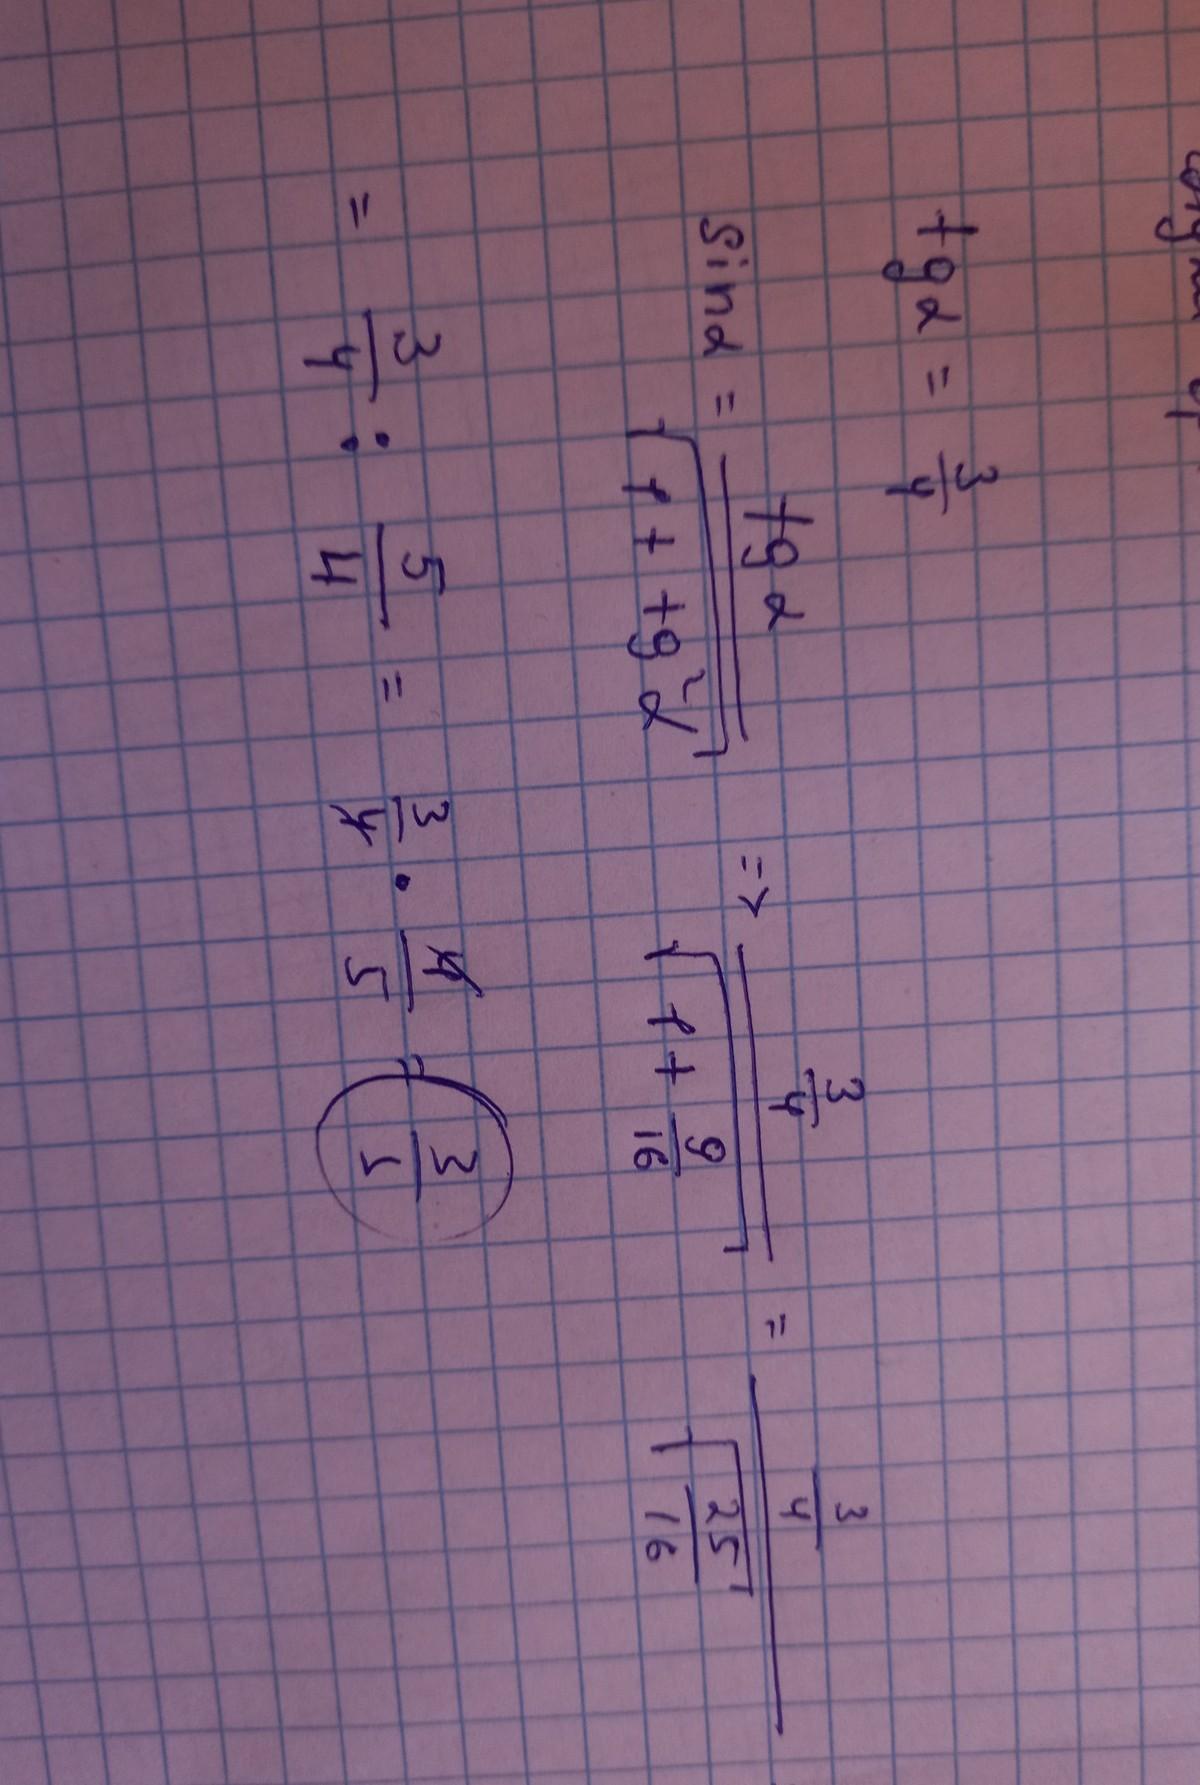 tgα = 3/4
sinα = tgα/√(1 + tg²α) => (3/4)/√(1 + 9/16) = (3/4)/√(25/16)
= 3/4 : 5/4 = 3/4 · 4/5 = 3/5